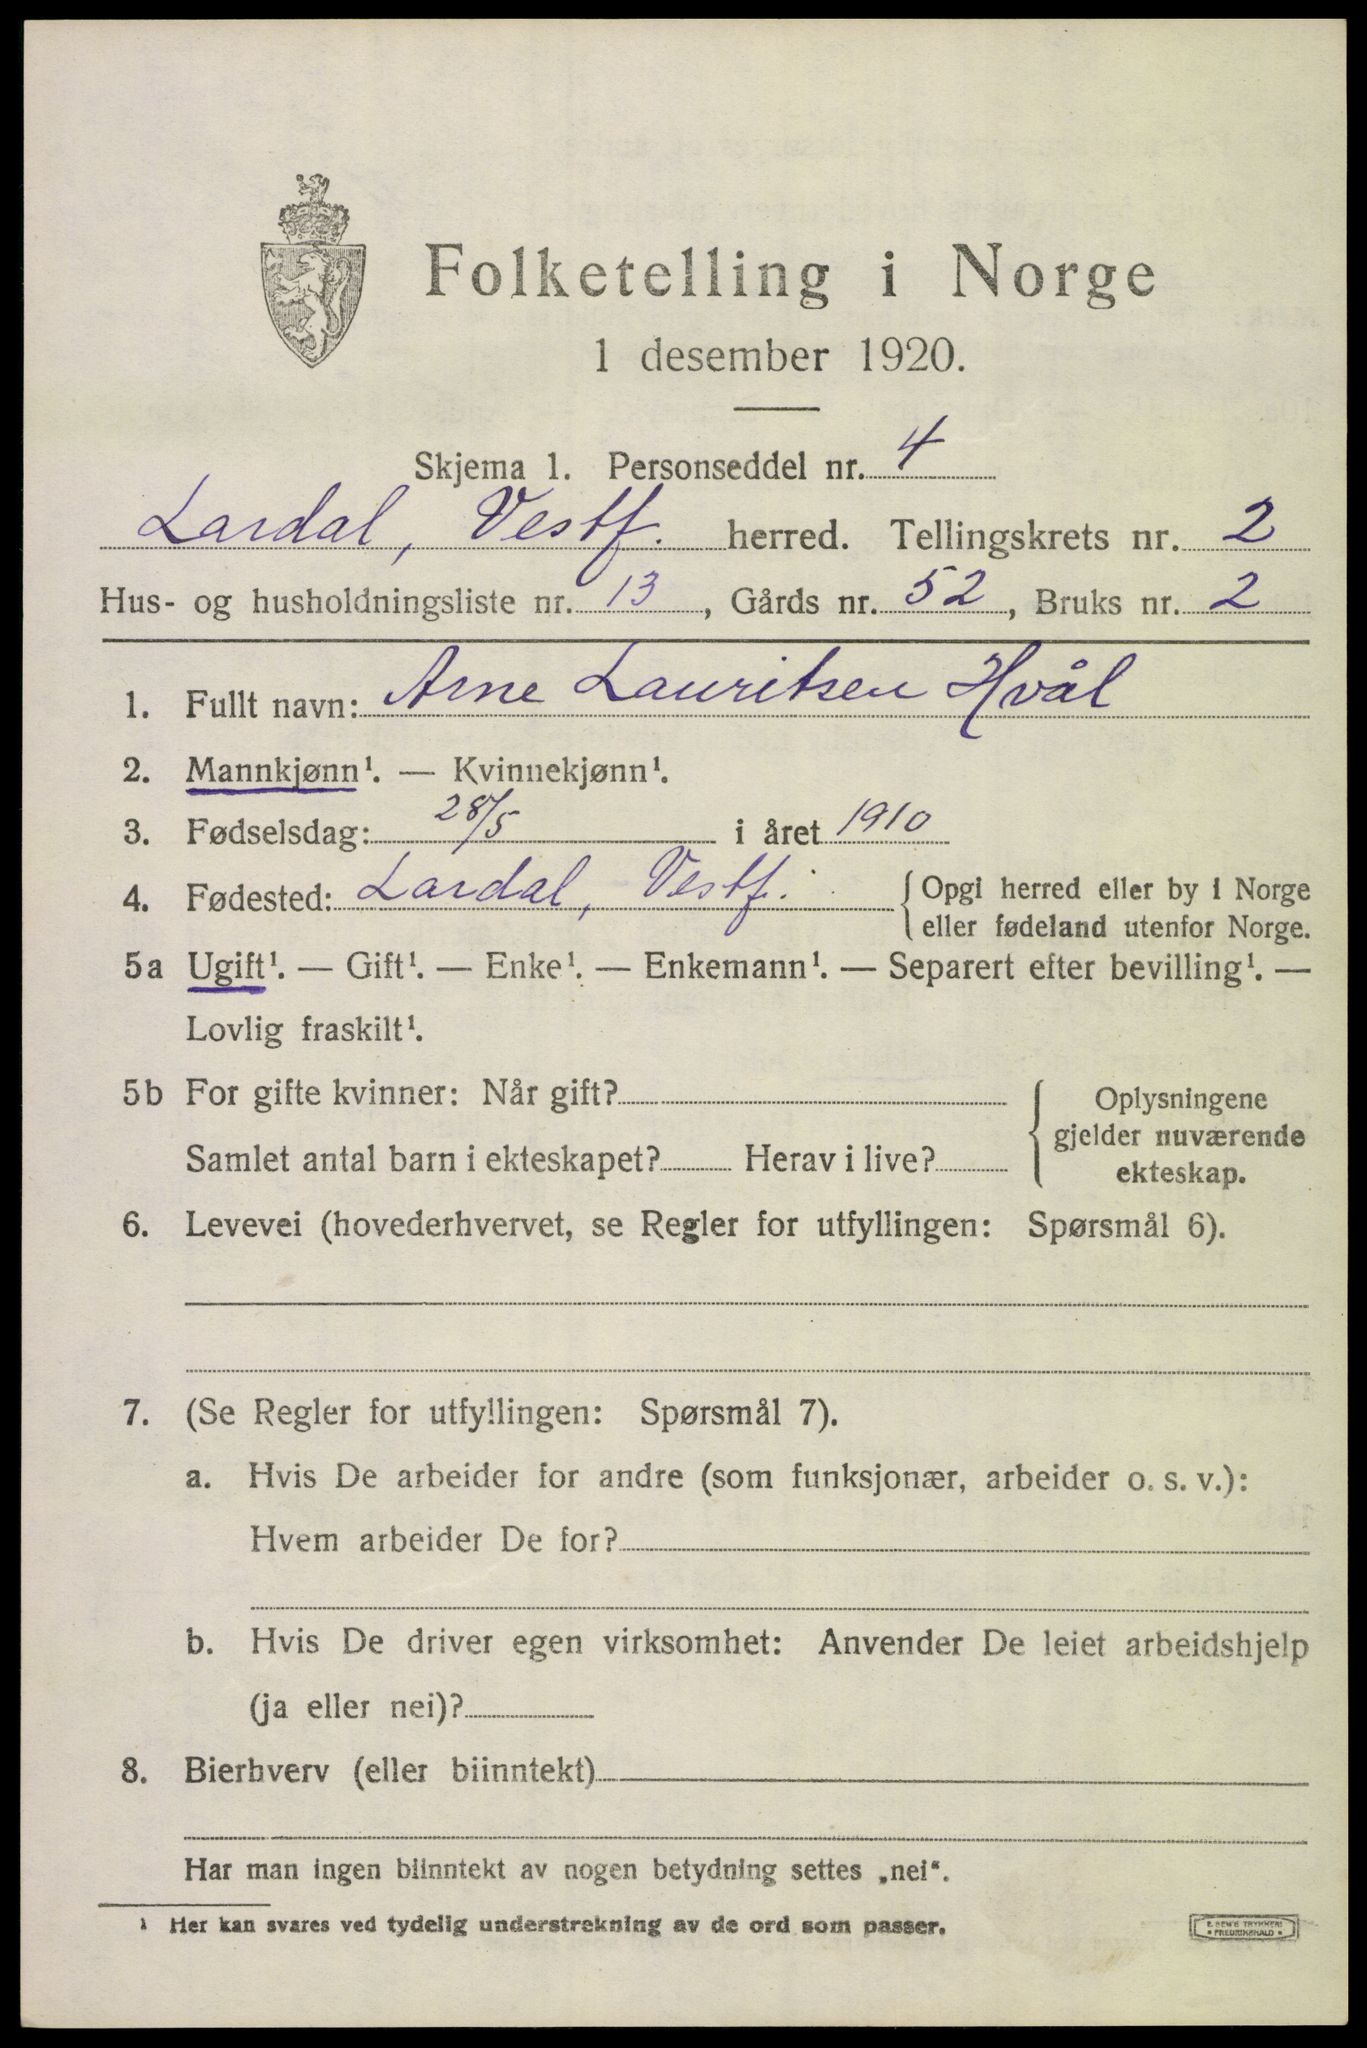 Folketelling i Norge
1 desember 1920.
Skjema 1. Personseddel nr. 4
Lardal, Vestf. herred. Tellingskrets nr. 2
Hus- og husholdningsliste nr. 13, Gårds nr. 52, Bruks nr. 2
1. Fullt navn: Arne Lauritsen Hvål
2. Mannkjønn¹. — Kvinnekjønn¹.
3. Fødselsdag: 28/5 i året 1910
4. Fødested: Lardal, Vestf. {Opgi herred eller by i Norge
eller fødeland utenfor Norge.
5a Ugift¹. — Gift¹. — Enke¹. — Enkemann¹. — Separert efter bevilling¹. —
Lovlig fraskilt¹.
5b For gifte kvinner: Når gift?
Samlet antal barn i ekteskapet? Herav i live?
Oplysningene
gjelder nuværende
ekteskap.
6. Levevei (hovederhvervet, se Regler for utfyllingen: Spørsmål 6).
7. (Se Regler for utfyllingen: Spørsmål 7).
a. Hvis De arbeider for andre (som funksjonær, arbeider o. s. v.):
Hvem arbeider De for?
b. Hvis De driver egen virksomhet: Anvender De leiet arbeidshjelp
(ja eller nei)?
8. Bierhverv (eller biinntekt)
Har man ingen biinntekt av nogen betydning settes „nei“.
¹ Her kan svares ved tydelig understrekning av de ord som passer.
E. SEM'S TRYKKERI
FREDRIKSHALD